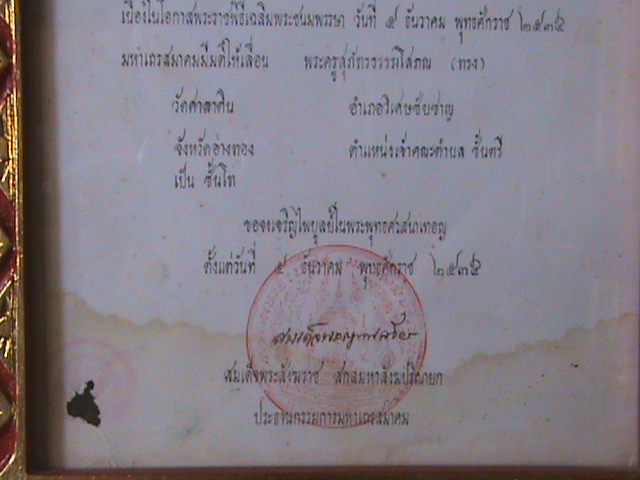 เนื่องในโอกาสพระราชพิธีเฉลิมพระชนมพรรษา วันที่ ๕ ธันวาคม พุทธศักราช ๒๕๓๕
มหาเถรสมาคมมีมติให้เลื่อน พระครูสุภัทรธรรมโสภณ (ทรง)
วัดศาลาดิน อำเภอวิเศษชัยชาญ
จังหวัดอ่างทอง ตำแหน่งเจ้าคณะตำบล ชั้นตรี
เป็น ชั้นโท
ขอจงเจริญไพบูลย์ในพระพุทธศาสนาเทอญ
ตั้งแต่วันที่ ๕ ธันวาคม พุทธศักราช ๒๕๓๕
สมเด็จพระญาณสังวร
สมเด็จพระสังฆราช สกลมหาสังฆปริณายก
ประธานกรรมการมหาเถรสมาคม